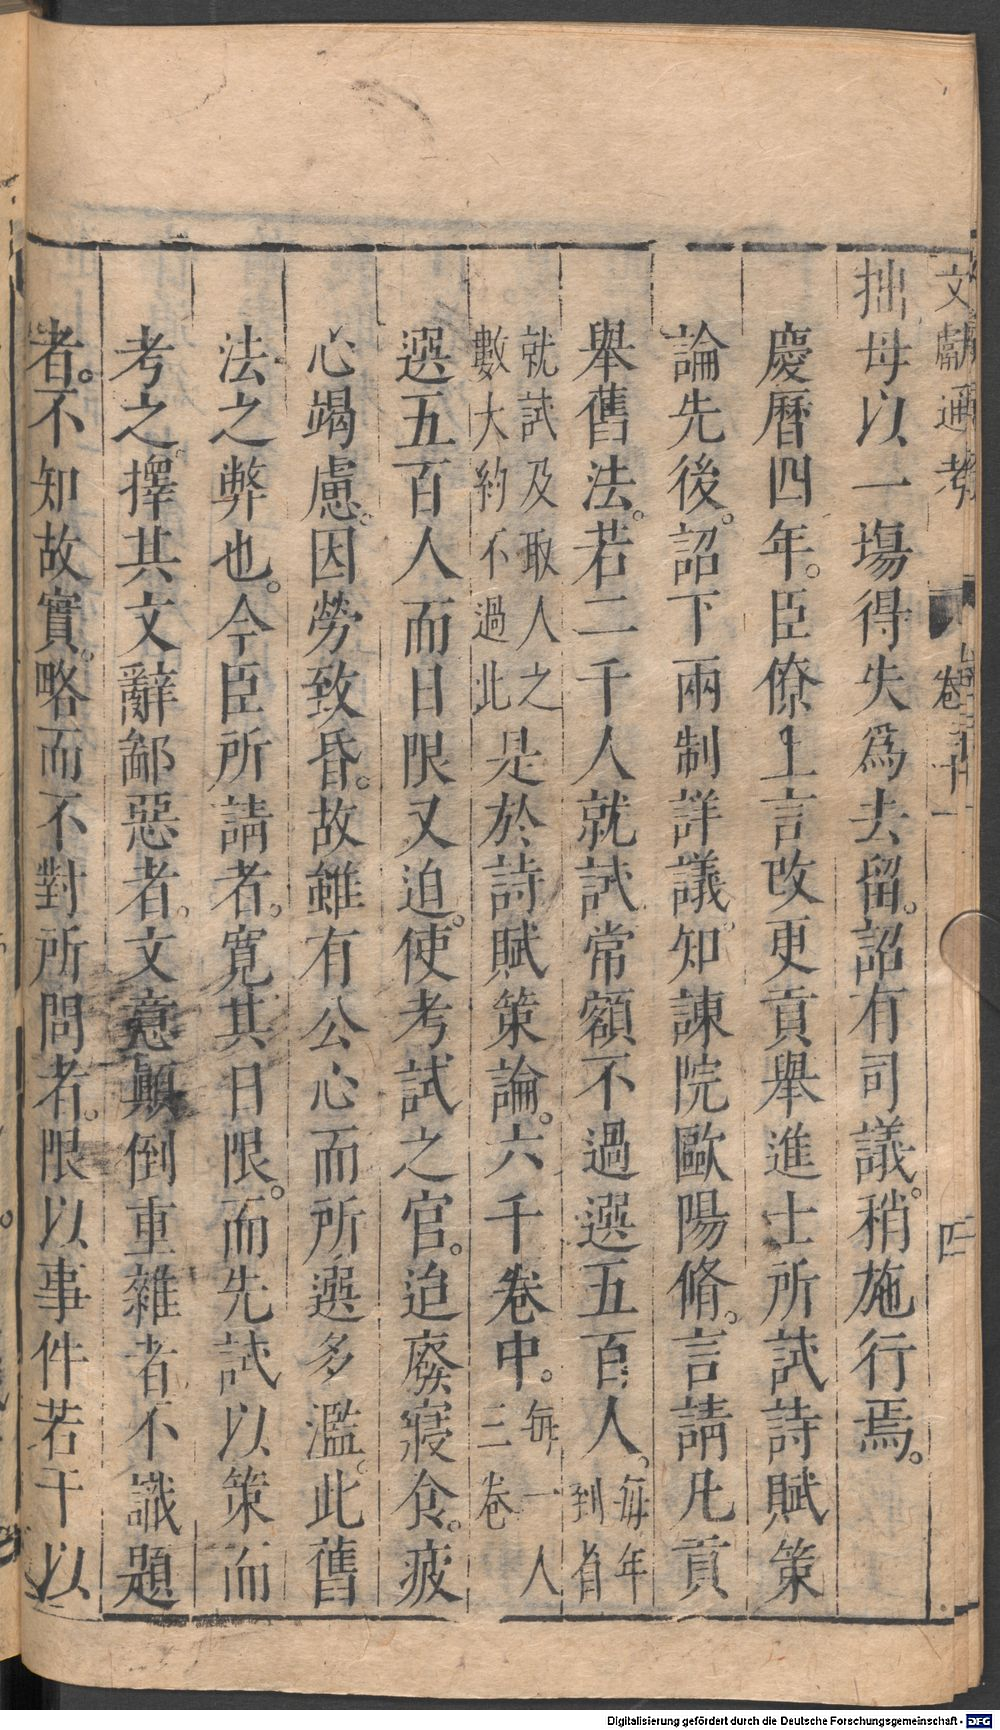 文獻通考 卷三十一 四
拙毋以一塲得失爲去留。詔有司議。稍施行焉。
慶曆四年。臣僚上言改更貢舉進士所試詩賦策
論先後。詔下兩制詳議。知諫院歐陽脩。言請凡貢
舉舊法。若二千人就試常額不過選五百人。每年到省
就試及取人之數大約不過此是於詩賦策論。六千卷中。每一人三卷
選五百人而日限又迫。使考試之官。迫廢寢食。疲
心竭慮。因勞致昏。故雖有公心而所選多濫。此舊
法之弊也。今臣所請者。寛其日限。而先試以策而
考之。擇其文辭鄙惡者。文意顛倒重雜者不識題
者。不知故實。略而不對所問者。限以事件若干以
Digitalisierung gefördert durch die Deutsche Forschungsgemeinschaft - DFG